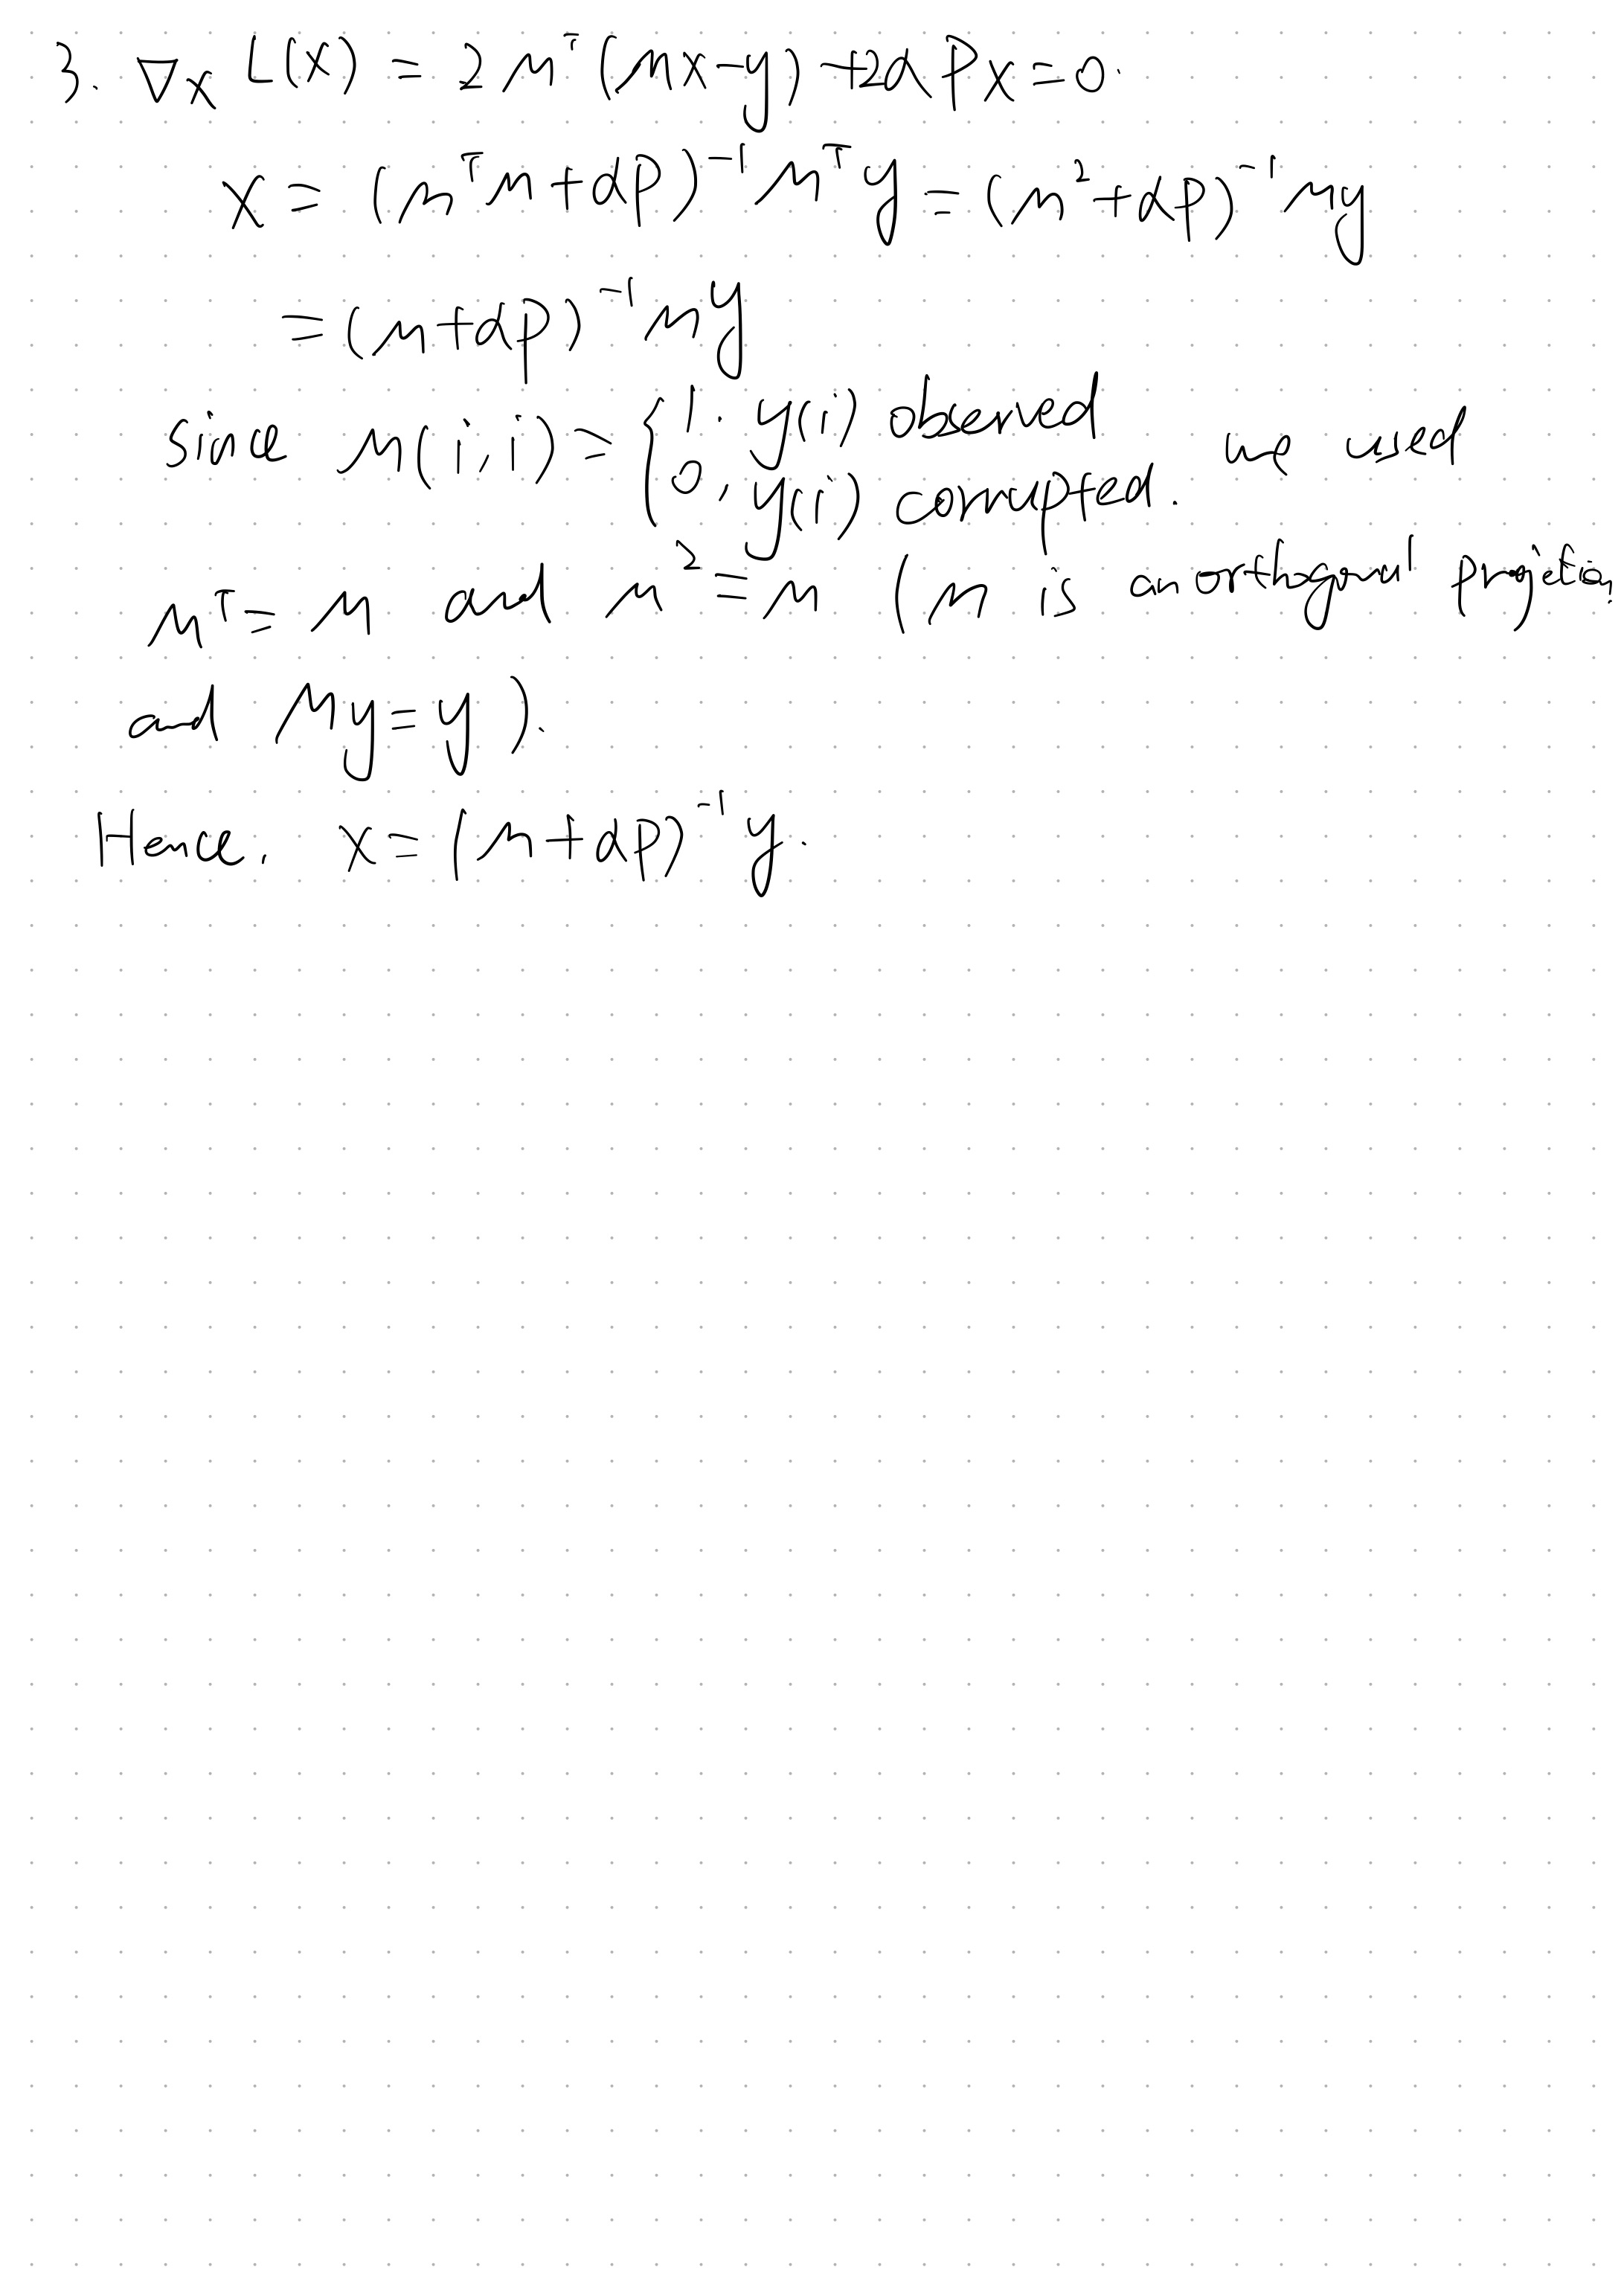 3. ∇ₓ L(x) = 2Mᵀ(Mx-y) + 2αPx = 0.
x = (MᵀM+αP)⁻¹Mᵀy = (M²+αP)⁻¹My
= (M+αP)⁻¹My
Since M(i,i) = { 1. y(i) observed
0, y(i) corrupted. we used
Mᵀ = M and M² = M (M is an orthogonal projection,
and My = y).
Hence, x = (M+αP)⁻¹y.